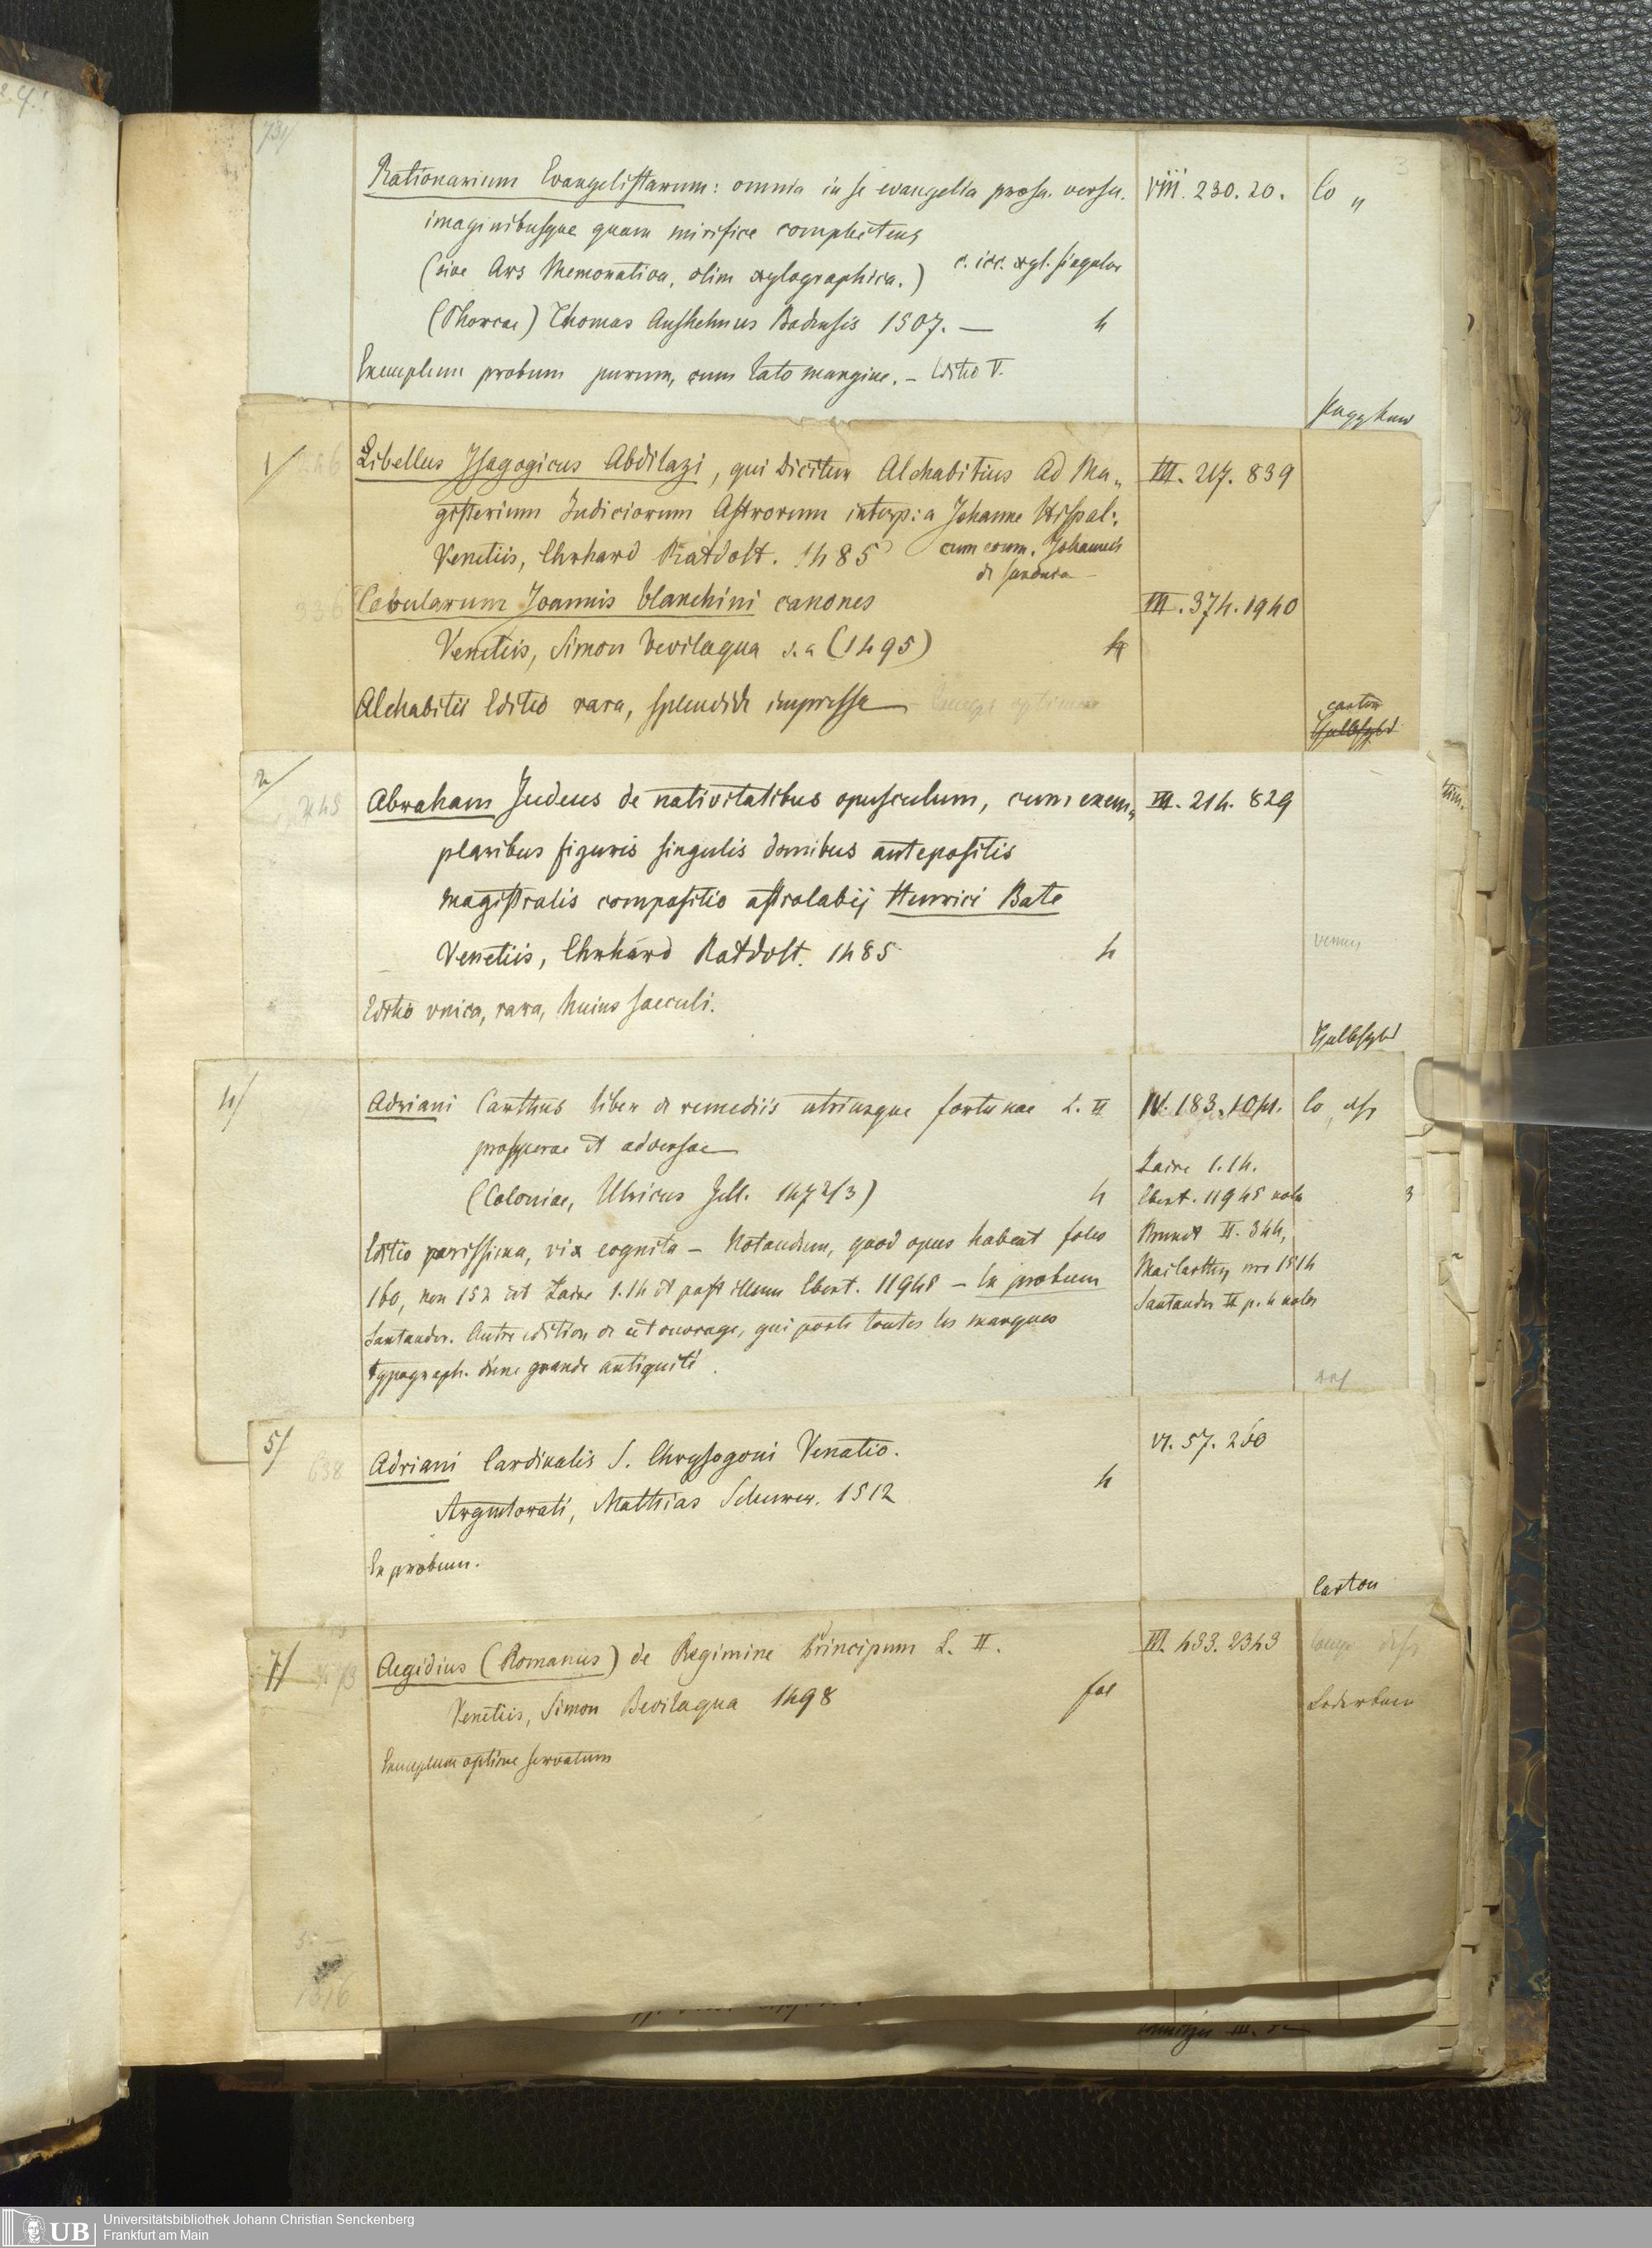 731
3
Rationarium Evangelistarum: omnia in se evangelia prosa. versu. VIII. 230. 20. Co „
imaginibusque quam mirifice complectens
(sive Ars Memorativa, olim xylographica.) c. icc. xyl. singular
(Phorcae) Thomas Anshelmus Badensis 1507. — 4
Exemplum probum purum, cum lato margine. – Editio V.
1/ Libellus Isagogicus Abdilazi, qui dicitur Alchabitius ad Ma„ III. 217. 839
gisterium Judiciorum Astrorum interp: a Johanne Hispal:
Venetiis, Ehrhard Ratdolt. 1485 cum com. Johannis
de Saxonia –
336 Tabularum Joannis blanchini canones III. 374. 1940
Venetiis, Simon Bevilaqua s. a (1495) 4
Alchabitii Editio rara, splendide impressa –
carton
Halbfzbd
2/ Abraham Judeus de nativitatibus opusculum, cum exem„ III. 214. 829
plaribus figuris singulis domibus antepositis
magistralis compositio astrolabij Henrici Bate
Venetiis, Ehrhard Ratdolt. 1485 4
Editio unica, rara, huius saeculi.
Halbfzbd
4/ Adriani Carthus liber de remediis utriusque fortunae L. II IV. 183. Co
prosperae et adversae
Laire 1. 14.
(Coloniae, Ulricus Zell. 1472/3) 4 Ebert. 11945 nota
Editio rarissima, vix cognita – Notandum, quod opus habeat folio Brunet II. 344,
160, non 152 ut Laire 1. 14 et post illum Ebert. 11945 – Ex probum
Santander. Autre edition de cet ouvrage, qui porte toutes les marques Santander II p. 4 notes
typograph. d'une grande antiquité.
5/ 638 Adriani Cardinalis S. Chrysogoni Venatio. VI. 57. 250
Argentorati, Matthias Schurer. 1512 4
Ex probum.
Carton
7/ Aegidius (Romanus) de Regimine Principum L. II. III. 433. 2343
Venetiis, Simon Bevilaqua 1498 fol
Lederband
Exemplum optime servatum
UB Universitätsbibliothek Johann Christian Senckenberg
Frankfurt am Main